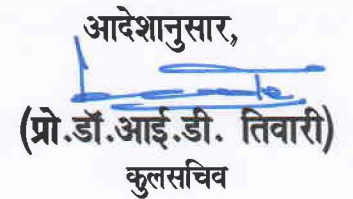 आदेशानुसार,
(प्रो.डॉ.आई.डी. तिवारी)
कुलसचिव